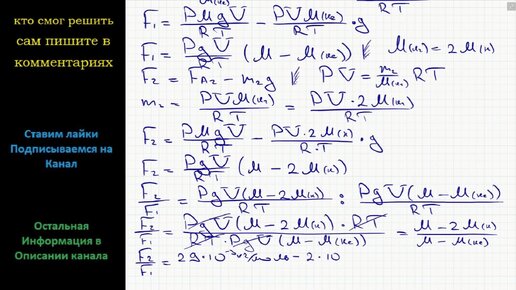 кто смог решить
сам пишите в
комментариях
Ставим лайки
Подписываемся на
Канал
Остальная
Информация в
Описании канала
F₁ = PMgV/RT − PVM(не)/RT · g
F₁ = PgV/RT (M − M(не)) M(н₂) = 2M(н)
F₂ = F_A₂ − m₂g PV = m₂/M(н₂) RT
m₂ = PVM(н₂)/RT = PV·2M(н)/RT
F₂ = PMgV/RT − PV·2M(н)/RT · g
F₂ = PgV/RT (M − 2M(н))
F₂/F₁ = PgV(M−2M(н))/RT : PgV(M−M(не))/RT
F₂/F₁ = PgV(M−2M(н))·RT/RT·PgV(M−M(не)) = M−2M(н)/M−M(не)
F₂/F₁ = 29·10⁻³ кг/моль − 2·10